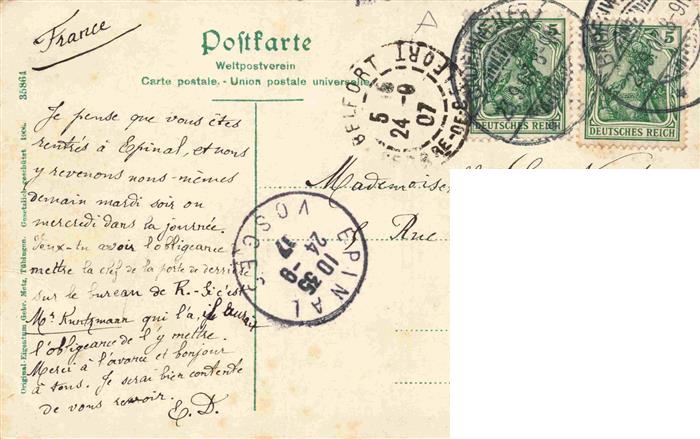 France
Postkarte
Weltpostverein
Carte postale. - Union postale universelle.
A
BADENWEILER
5
DEUTSCHES REICH
5
DEUTSCHES REICH
BELFORT
5
24 - 9
07
EPINAL
VOSGES
10 35
24 - 9
Mademoise
Rue
Je pense que vous êtes
rentrés à Epinal, et nous
y revenons nous-mêmes
demain mardi soir ou
mercredi dans la journée.
Veux-tu avoir l'obligeance
mettre la clef de la porte de derrière
sur le bureau de R. - Si c'est
Mr Kuntzmann qui l'a, il aurait
l'obligeance de l'y mettre.
Merci à l'avance et bonjour
à tous. Je serai bien contente
de vous revoir.
E. D.
Original-Eigentum Gebr. Metz, Tübingen. Gesetzlich geschützt 1906. 35864